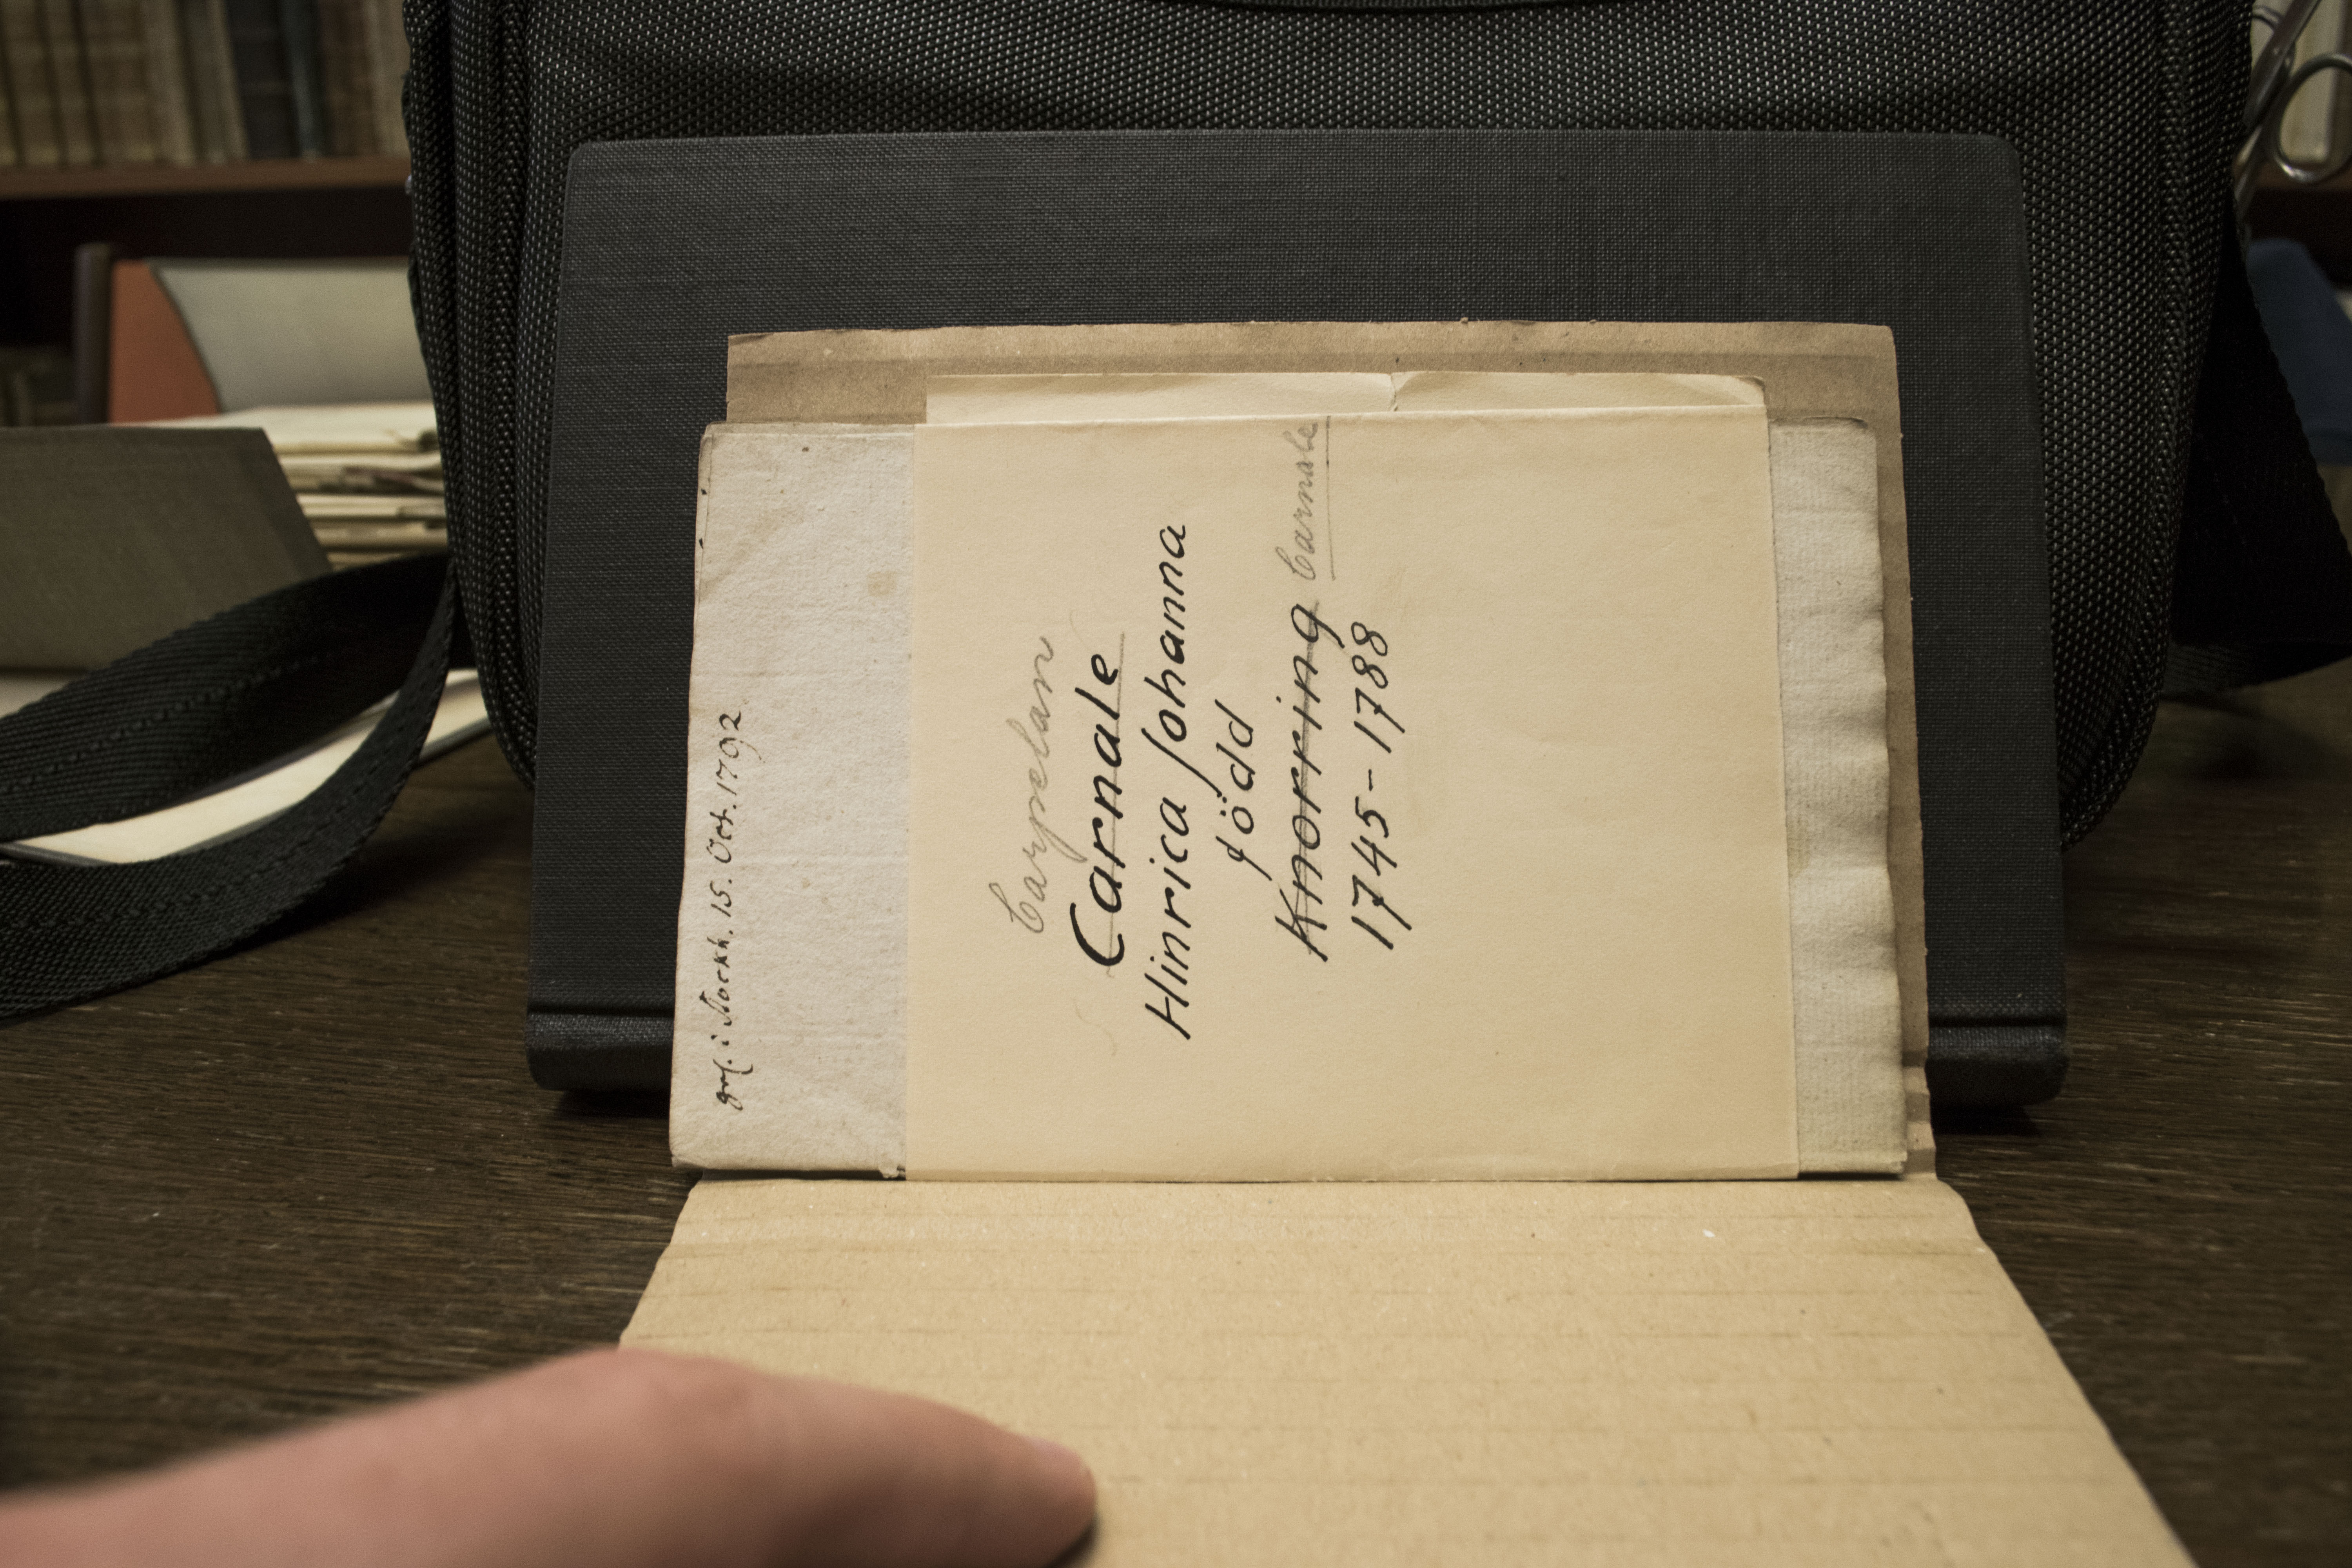 i Stockh. 15. Oct. 1792
Carpelan
Carnale
Hinrica Johanna
född
Knorring Carnale
1745-1788